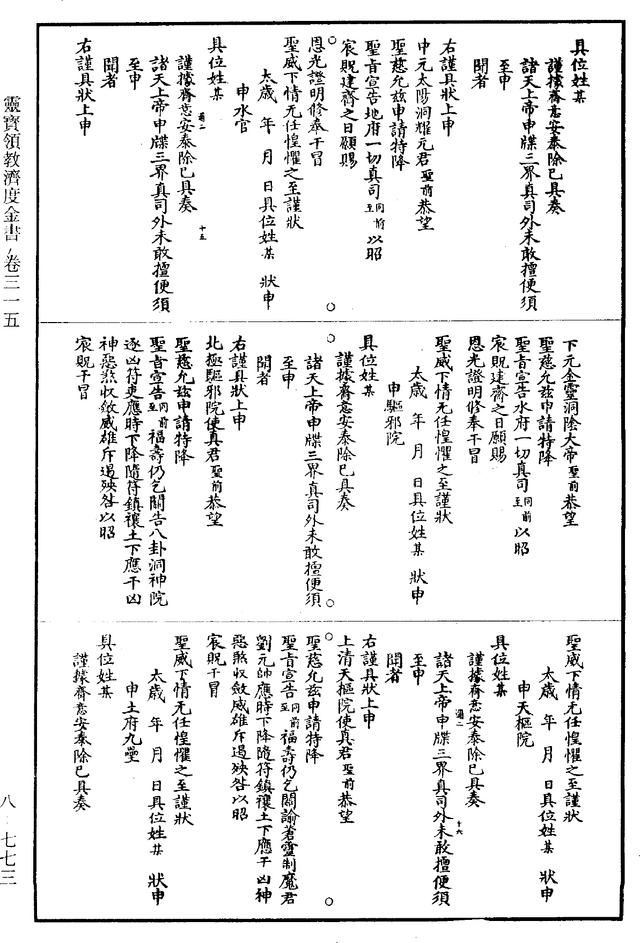 具位姓某
謹據齋意安奉除已具奏
諸天上帝申牒三界真司外未敢擅便須
至申
聞者
右謹具狀上申
中元太陽洞耀元君聖前恭望
聖慈允玆申請特降
聖旨宣告地府一切真司至同前以昭
宸貺建齋之日願賜
恩光證明修奉干冒
聖威下情无任惶懼之至謹狀
太歲 年 月 日具位姓某 狀申
申水官
具位姓某
謹據齋意安奉除已具奏
諸天上帝申牒三界真司外未敢擅便須
至申
聞者
右謹具狀上申
下元金靈洞陰大帝聖前恭望
聖慈允玆申請特降
聖旨宣告水府一切真司至同前以昭
宸貺建齋之日願賜
恩光證明修奉干冒
聖威下情无任惶懼之至謹狀
太歲 年 月 日具位姓某 狀申
申驅邪院
具位姓某
謹據齋意安奉除已具奏
諸天上帝申牒三界真司外未敢擅便須
至申
聞者
右謹具狀上申
北極驅邪院使真君聖前恭望
聖慈允玆申請特降
聖旨宣告至同前福壽仍乞關告八卦洞神院
逐凶符吏應時下降隨符鎮禳土下應干凶
神惡煞收斂威雄斥遏殃咎以昭
宸貺干冒
聖威下情无任惶懼之至謹狀
太歲 年 月 日具位姓某 狀申
申天樞院
具位姓某
謹據齋意安奉除已具奏
諸天上帝申牒三界真司外未敢擅便須
至申
聞者
右謹具狀上申
上清天樞院使真君聖前恭望
聖慈允玆申請特降
聖旨宣告至同前福壽仍乞關諭蒼靈制魔君
劉元帥應時下降隨符鎮禳土下應干凶神
惡煞收斂威雄斥遏殃咎以昭
宸貺干冒
聖威下情无任惶懼之至謹狀
太歲 年 月 日具位姓某 狀申
申土府九壘
具位姓某
謹據齋意安奉除已具奏
靈寶領教濟度金書/卷三一五
八·七七三
十五
十六